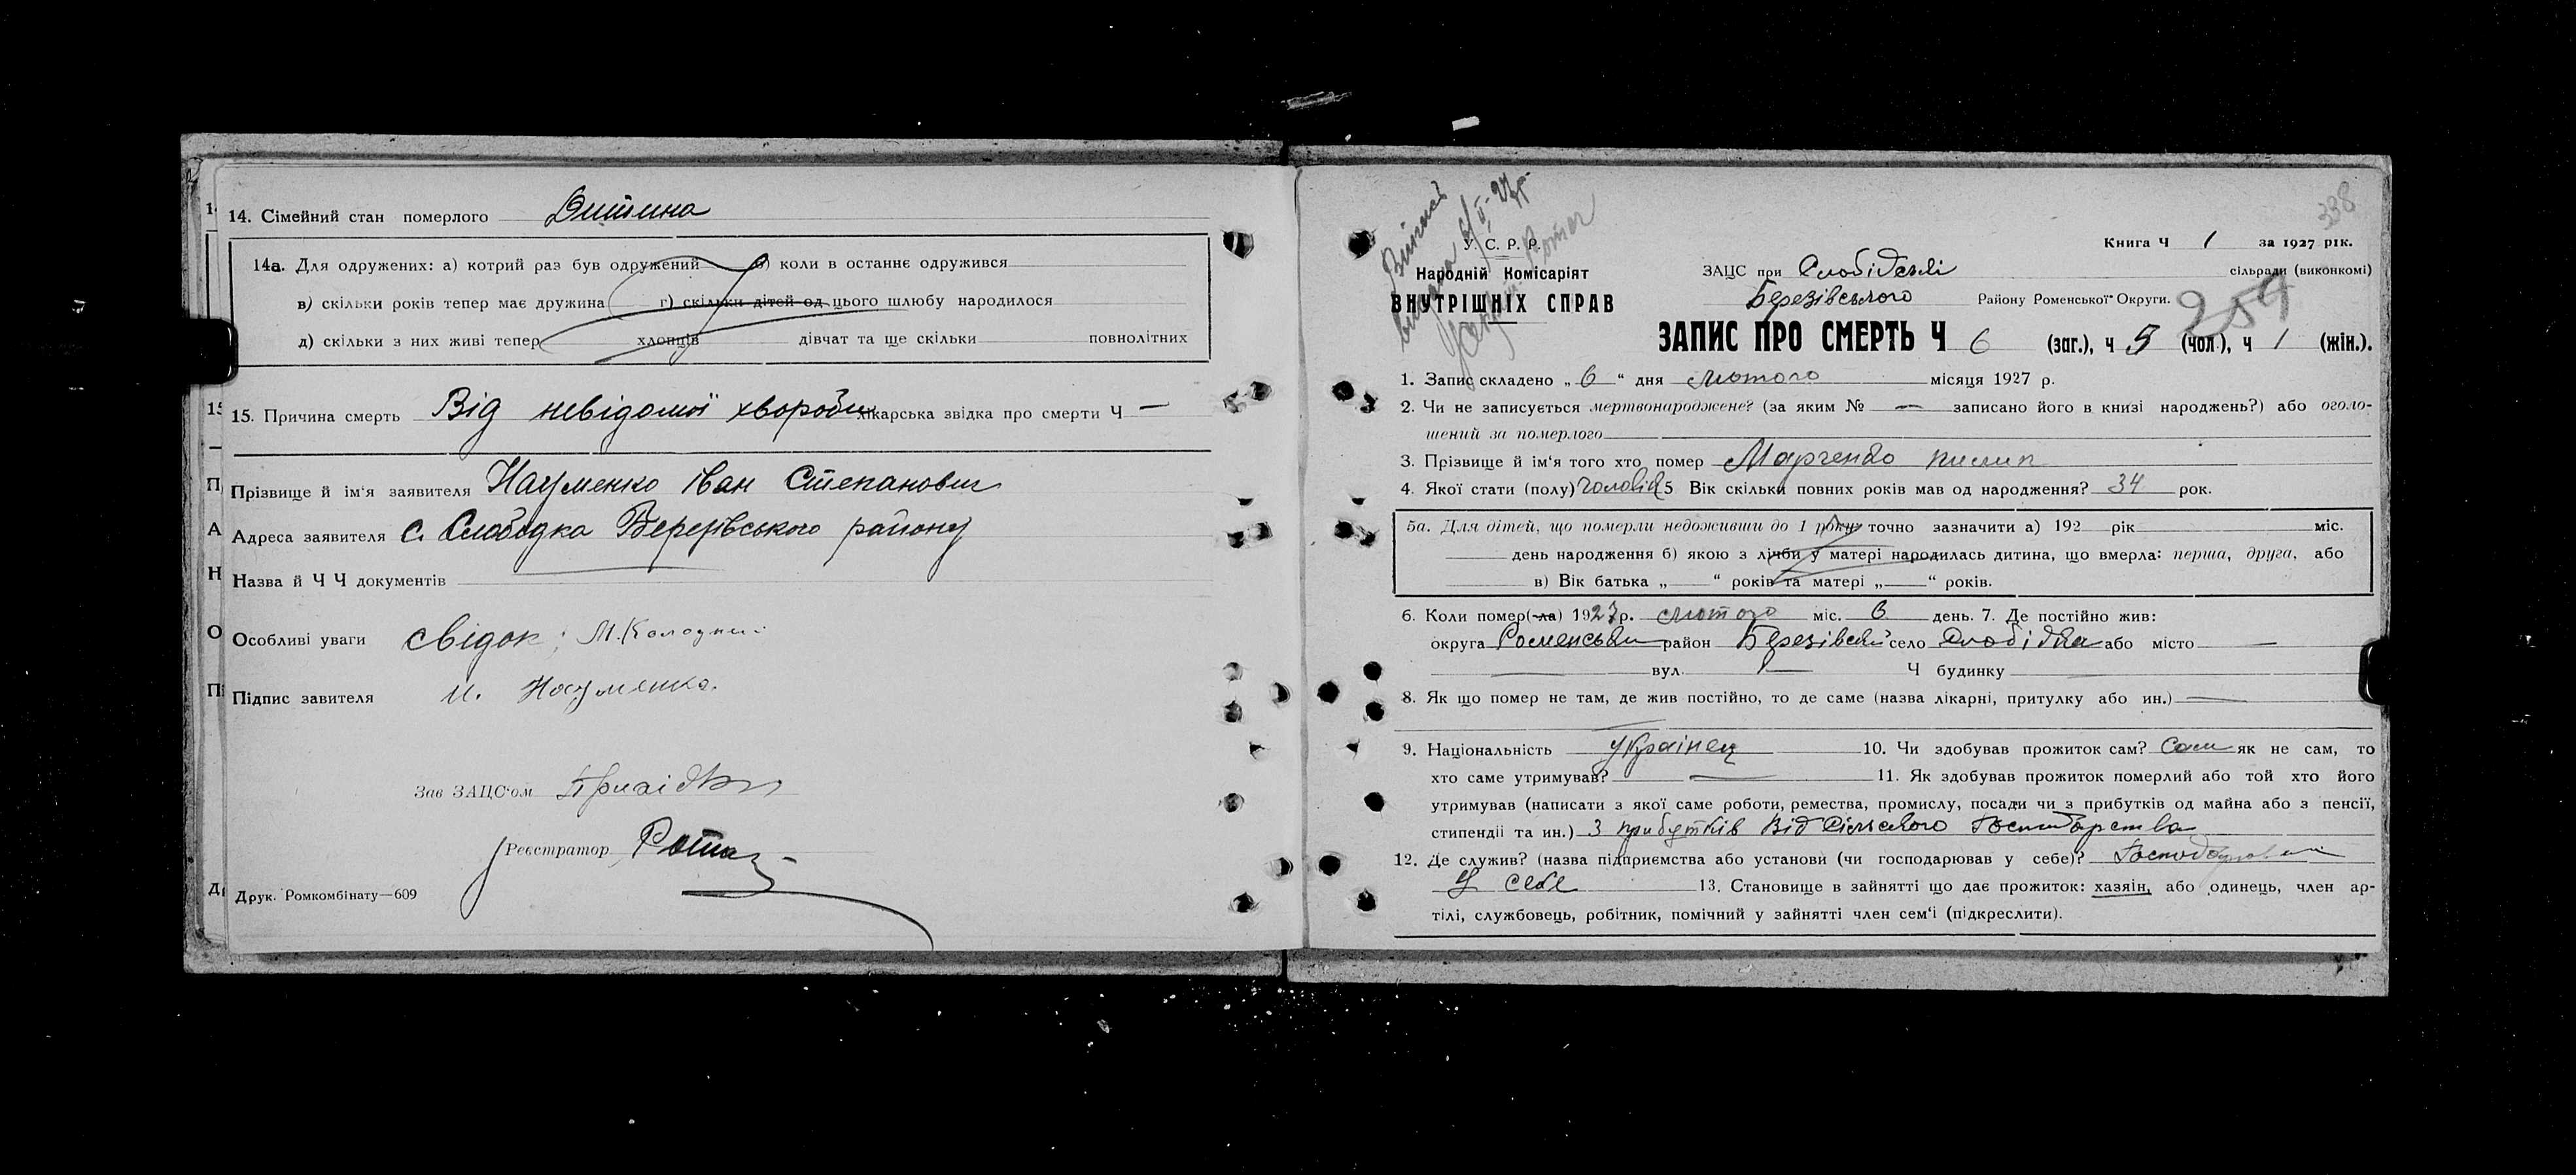 14. Сімейний стан померлого Дитина
14а. Для одружених: а) котрий раз був одружений б) коли в останнє одружився
в) скільки років тепер має дружина г) скільки дітей од цього шлюбу народилося
д) скільки з них живі тепер хлопців дівчат та ще скільки повнолітних
15. Причина смерть Від невідомої хвороби лікарська звідка про смерти Ч —
Прізвище й ім'я заявителя Науменко Іван Степанович
Адреса заявителя с. Слобідка Березівського району
Назва й Ч Ч документів
Особливі уваги свідок: М. Колодний
Підпис завителя И. Науменко.
Зав ЗАЦС'ом
Реєстратор
Друк. Ромкомбінату—609
338
У. С. Р. Р.
Народній Комісаріят
ВНУТРІШНІХ СПРАВ
Книга Ч 1 за 1927 рік.
ЗАЦС при Слобідській сільради (виконкомі)
Березівського Району Роменської Округи.
254
ЗАПИС ПРО СМЕРТЬ Ч 6 (заг.), ч 5 (чол.), ч 1 (жін.).
1. Запис складено „ 6 “ дня лютого місяця 1927 р.
2. Чи не записується мертвонароджене? (за яким № — записано його в книзі народжень?) або оголо-
шений за померлого
3. Прізвище й ім'я того хто помер Марченко Пилип
4. Якої стати (полу) чоловіч 5 Вік скільки повних років мав од народження? 34 рок.
5а. Для дітей, що померли недоживши до 1 року точно зазначити а) 192 рік міс.
день народження б) якою з лічби у матері народилась дитина, що вмерла: перша, друга, або
в) Вік батька „ “ років та матері „ “ років.
6. Коли помер(-ла) 1927 р. лютого міс. 6 день. 7. Де постійно жив:
округа Роменськи район Березівськ село Слобідка або місто —
вул. — Ч будинку
8. Як що помер не там, де жив постійно, то де саме (назва лікарні, притулку або ин.) —
9. Національність Українец 10. Чи здобував прожиток сам? Сам як не сам, то
хто саме утримував? — 11. Як здобував прожиток померлий або той хто його
утримував (написати з якої саме роботи, ремества, промислу, посади чи з прибутків од майна або з пенсії,
стипендії та ин.) З прибутків від сільского господарства
12. Де служив? (назва підприємства або установи (чи господарював у себе)? Господарював
У себе 13. Становище в зайнятті що дає прожиток: хазяїн, або одинець, член ар-
тілі, службовець, робітник, помічний у зайнятті член сем'ї (підкреслити).